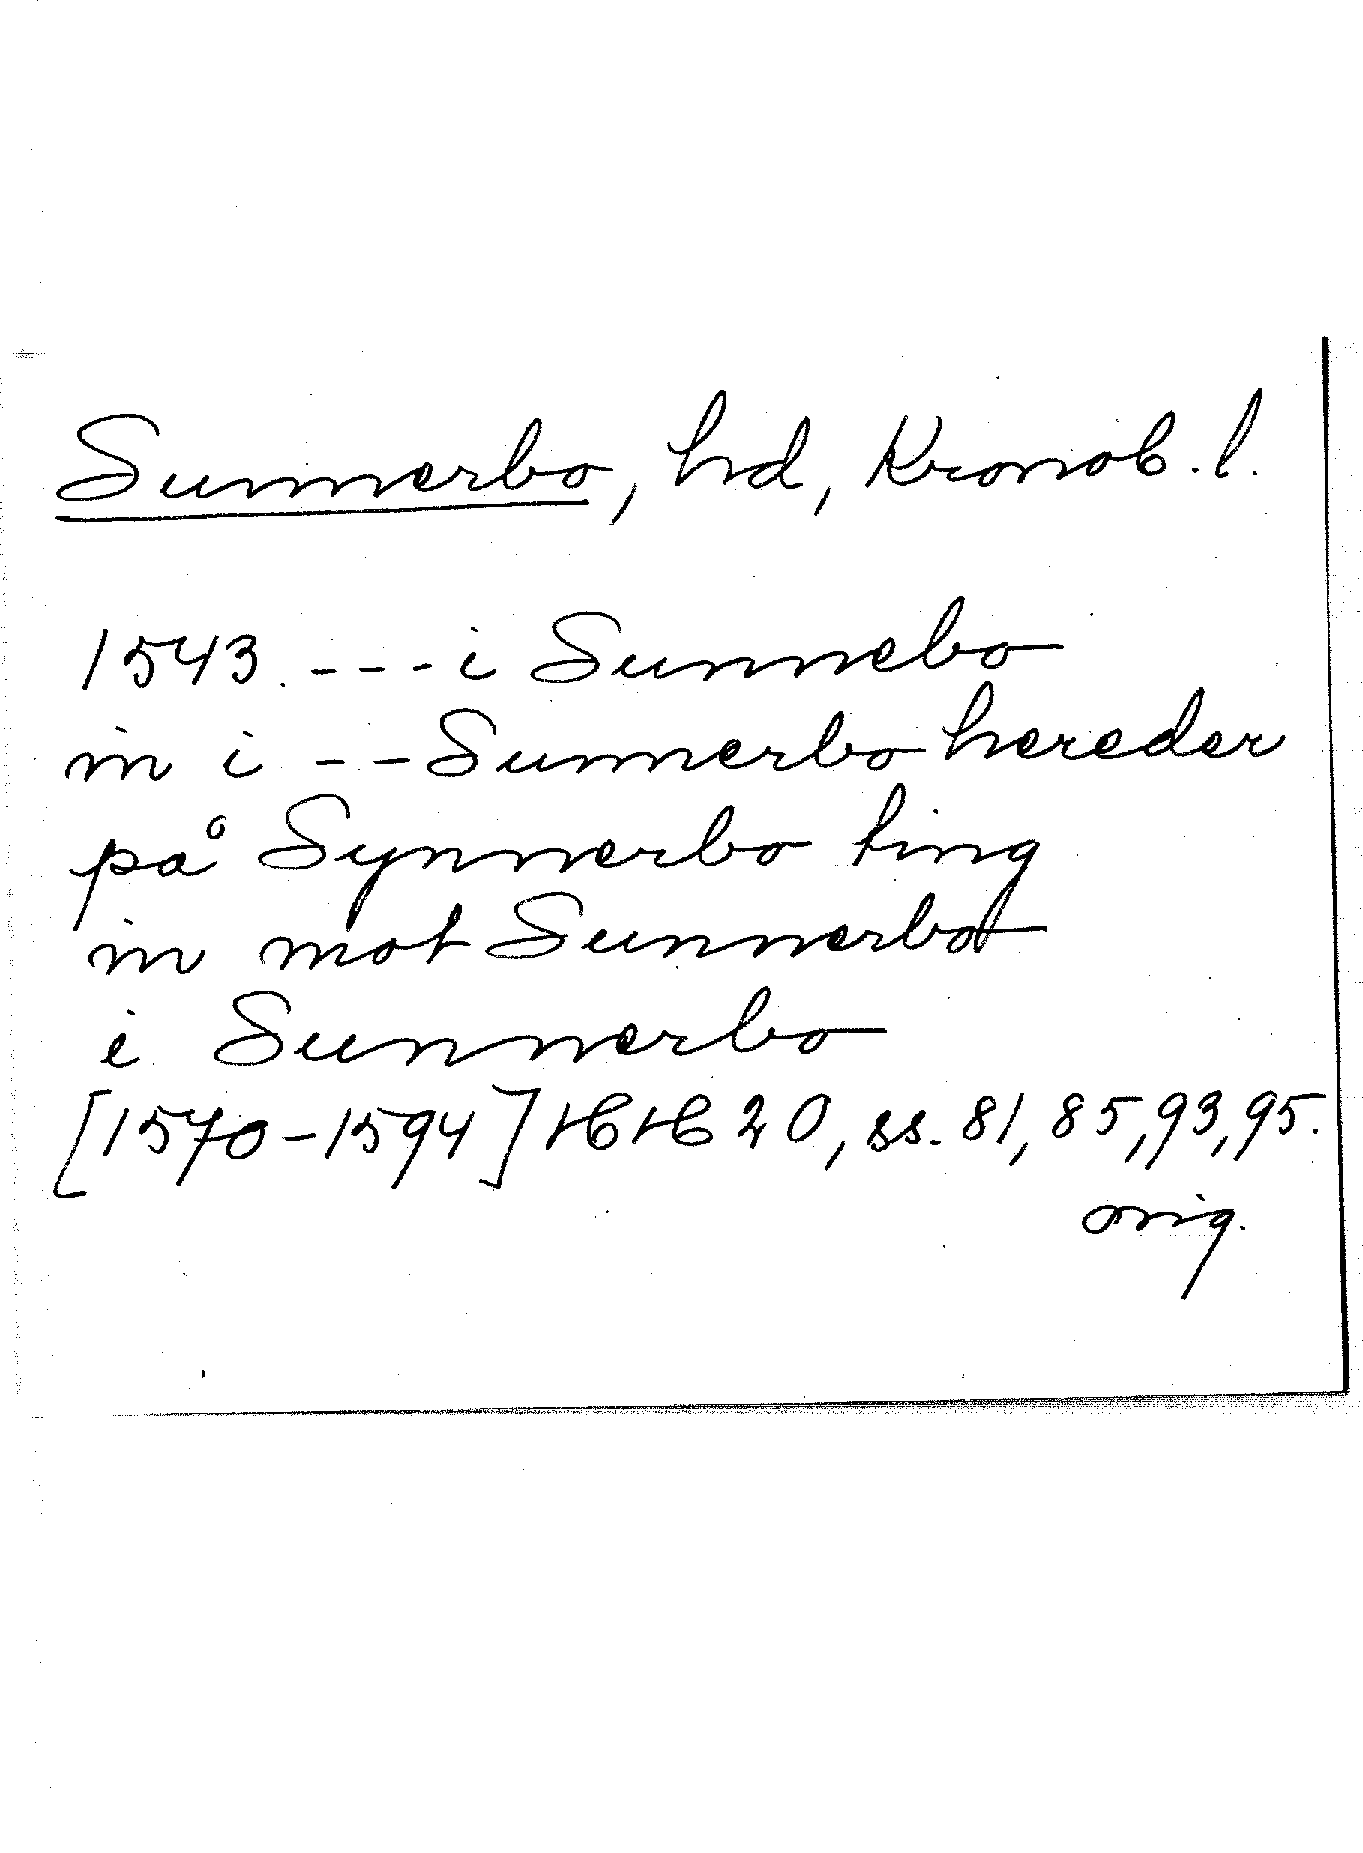 Sunnerbo, hd, Kronob. l.
1543. --- i Sunnebo
in i -- Sunnerbo hereder
på Synnerbo ting
in mot Sunnerbo
i Sunnerbo
[1570-1594] HH 20, ss. 81, 85, 93, 95.
orig.